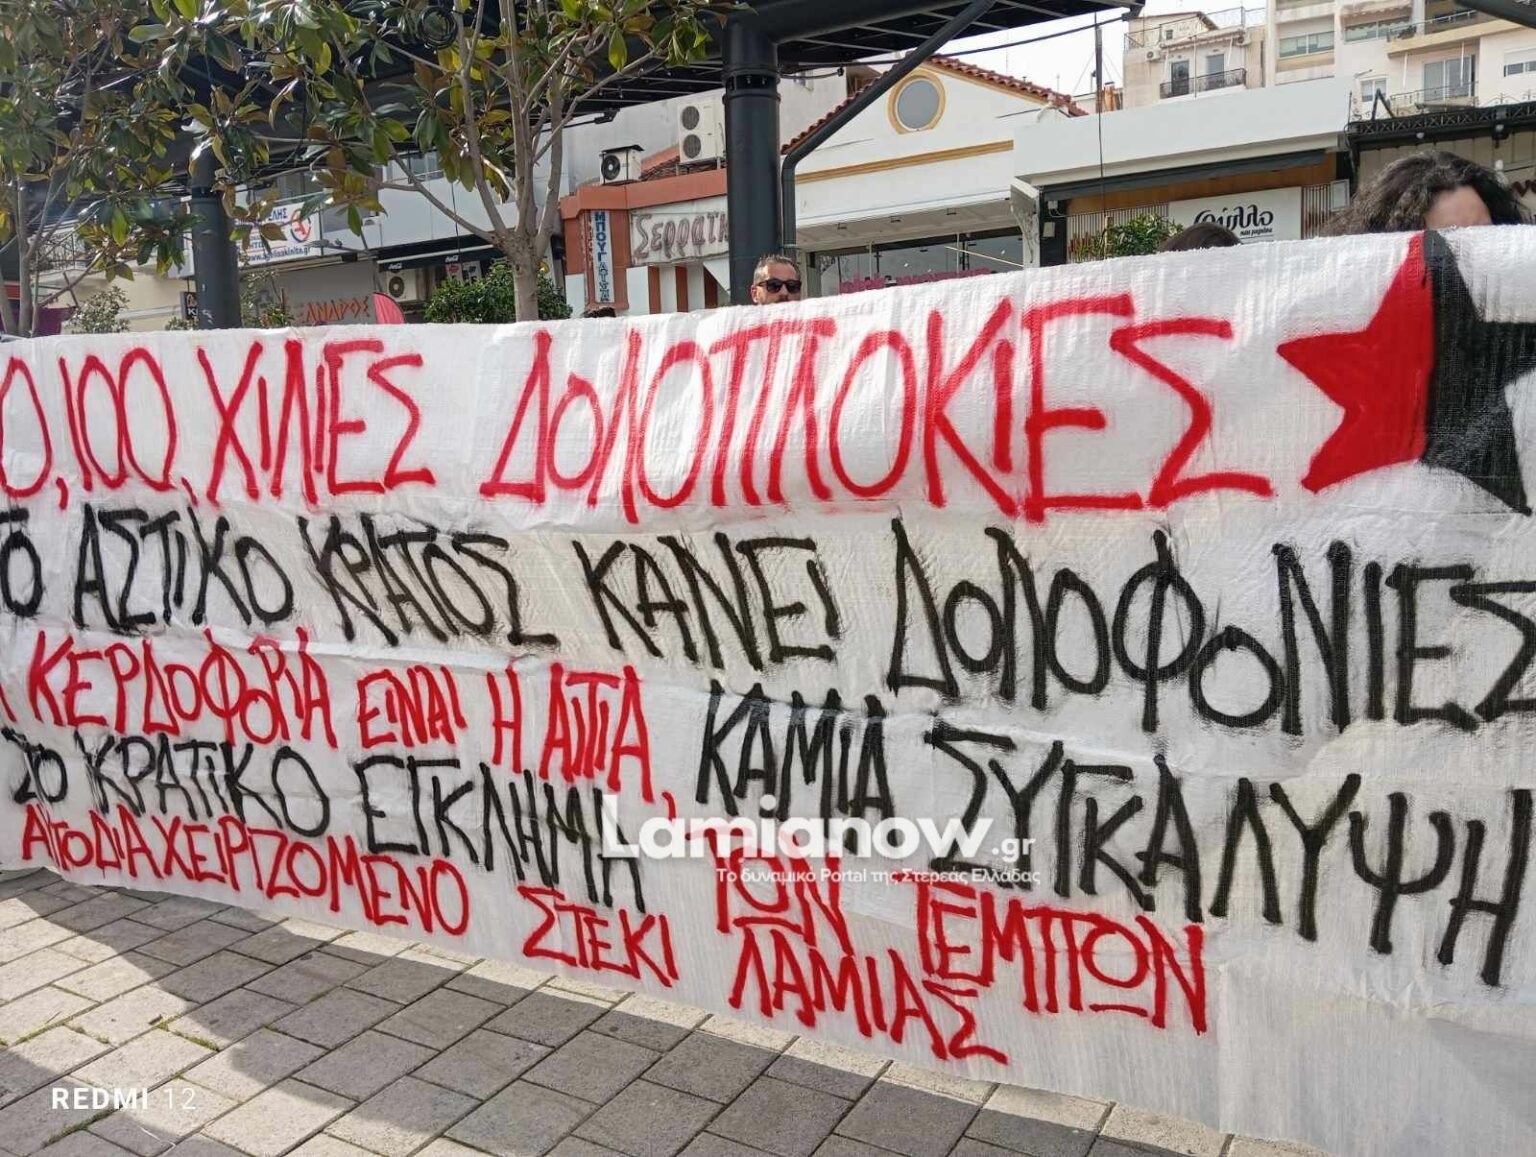 ΣΕΡΡΑΪΚ
ΜΠΟΥΓΑΤΣΑ
φύλλο
ΞΑΝΔΡΟΣ
0,100, ΧΙΛΙΕΣ ΔΟΛΟΠΛΟΚΙΕΣ
ΤΟ ΑΣΤΙΚΟ ΚΡΑΤΟΣ ΚΑΝΕΙ ΔΟΛΟΦΟΝΙΕΣ
Η ΚΕΡΔΟΦΟΡΙΑ ΕΙΝΑΙ Η ΑΙΤΙΑ, ΚΑΜΙΑ ΣΥΓΚΑΛΥΨΗ
ΣΤΟ ΚΡΑΤΙΚΟ ΕΓΚΛΗΜΑ ΤΩΝ ΤΕΜΠΩΝ
ΑΥΤΟΔΙΑΧΕΙΡΙΖΟΜΕΝΟ ΣΤΕΚΙ ΛΑΜΙΑΣ
Lamianow.gr
Το δυναμικό Portal της Στερεάς Ελλάδας
REDMI 12